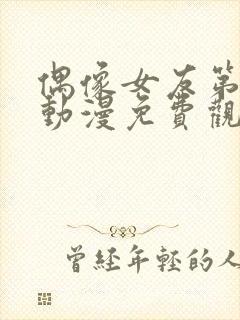 偶像女友第
動漫免費觀
曾經年輕的人